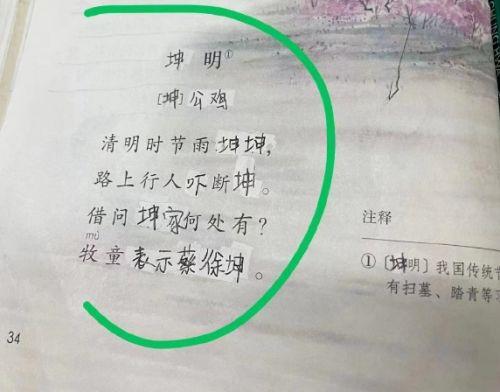 坤明①
[坤]公鸡
清明时节雨坤坤,
路上行人吓断坤。
借问坤家何处有?
mù
牧童表示蔡徐坤。
注释
①[坤明]我国传统节
有扫墓、踏青等
34